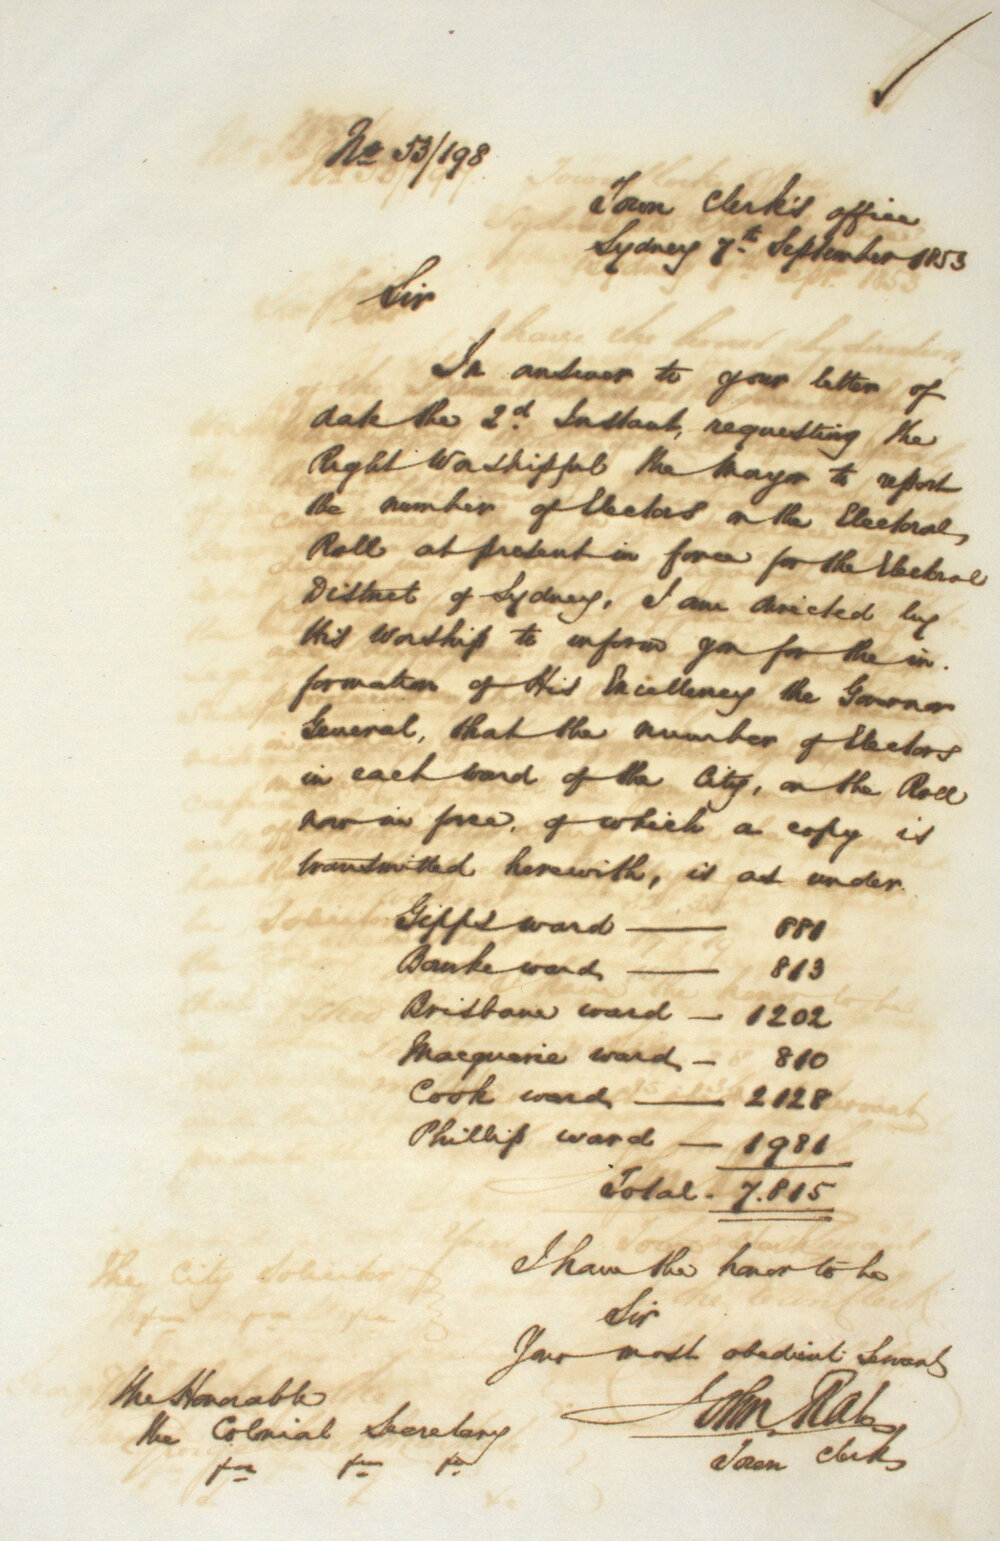 No 53/198
Town Clerk's office
Sydney 7th September 1853
Sir
In answer to your letter of
date the 2d Instant, requesting the
Right Worshipful the Mayor to report
the number of Electors on the Electoral
Roll at present in force for the Electoral
District of Sydney, I am directed by
His Worship to inform you for the in.
formation of His Excellency the Governor
General, that the number of Electors
in each ward of the City, on the Roll
now in force, of which a copy is
transmitted herewith, is as under.
Gipps ward — 881
Bourke ward — 813
Brisbane ward — 1202
Macquarie ward — 810
Cook ward — 2128
Phillip ward — 1981
Total. 7.815
I have the honor to be
Sir
Your most obedient Servant
John Rae
Town Clerk
The Honorable
the Colonial Secretary